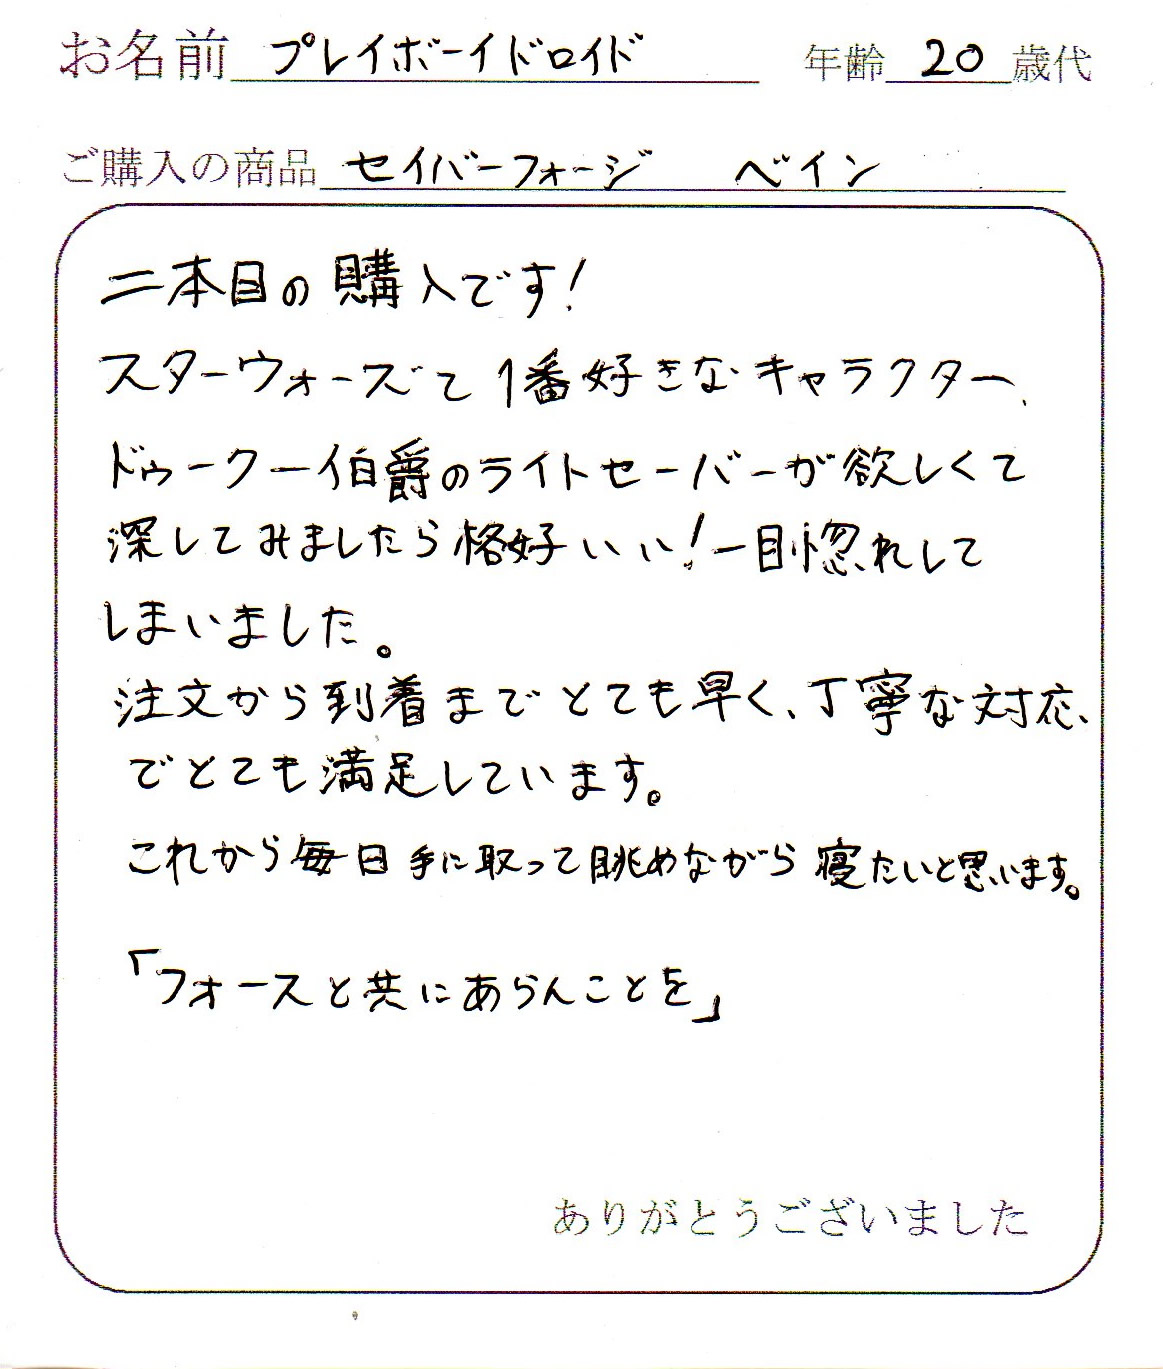 お名前 プレイボーイドロイド 年齢 20 歳代
ご購入の商品 セイバーフォージ ベイン
二本目の購入です!
スターウォーズで1番好きなキャラクター、
ドゥークー伯爵のライトセーバーが欲しくて
深してみましたら格好いい!一目惚れして
しまいました。
注文から到着までとても早く、丁寧な対応、
でとても満足しています。
これから毎日手に取って眺めながら寝たいと思います。
「フォースと共にあらんことを」
ありがとうございました